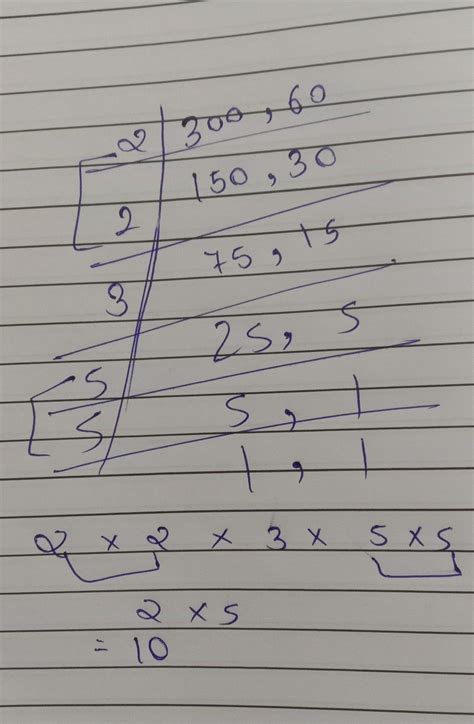 2 | 300, 60
2 | 150, 30
3 | 75, 15
5 | 25, 5
5 | 5, 1
1, 1
2 × 2 × 3 × 5 × 5
2 × 5
= 10